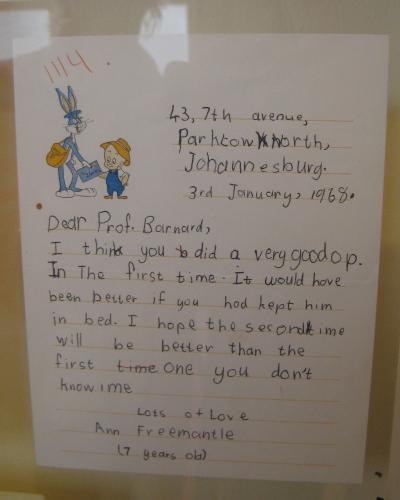 1114.
43, 7th avenue,
Parktow North,
Johannesburg.
3rd January, 1968.
Dear Prof. Barnard,
I think you did a very good op.
In The first time. It would have
been better if you had kept him
in bed. I hope the second time
will be better than the
first time One you don't
know ime
Lots of Love
Ann Freemantle
(7 years old)